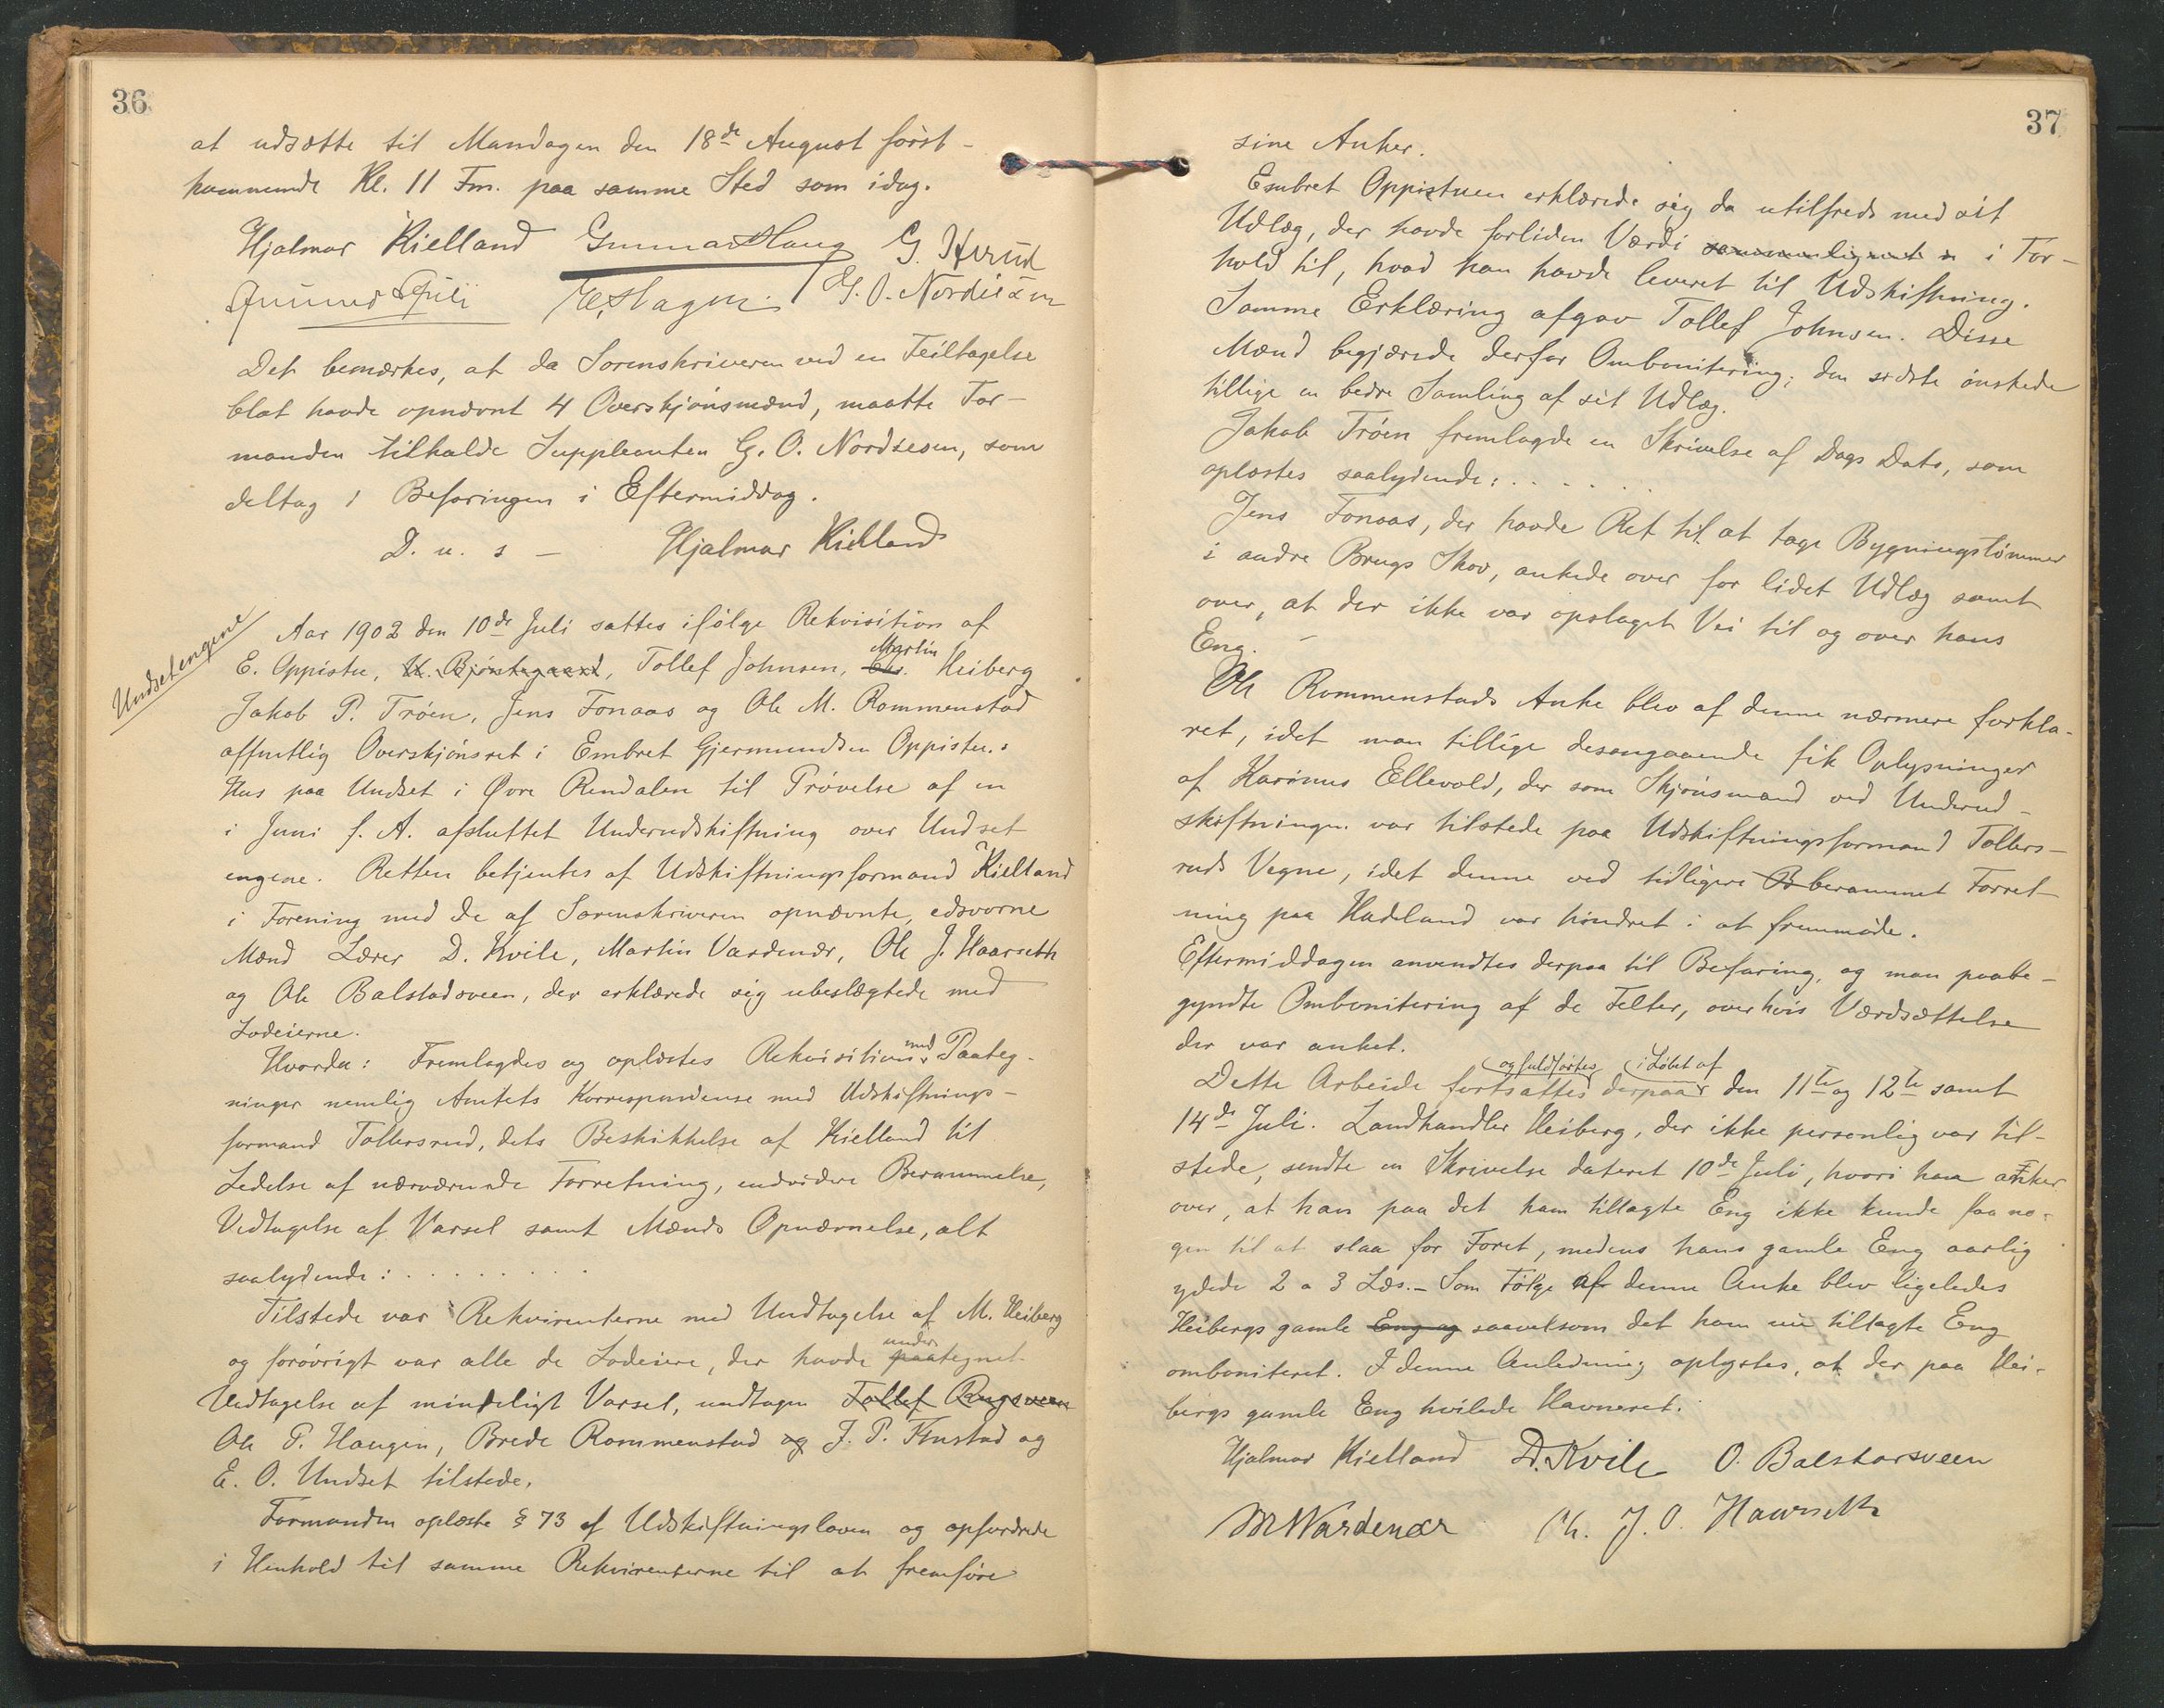 36
at udsætte til Mandagen den 18de August först-
kommende Kl. 11 Fm. paa samme Sted som idag.
Hjalmar Kielland Gunnar Haug G. Horud
G. O. Nordsesen
Det bemærkes, at da Sorenskriveren ved en Feiltagelse
blot havde opnævnt 4 Overskjönsmænd, maatte For-
manden tilkalde Suppleanten G. O. Nordsesen, som
deltog i Befaringen i Eftermiddag.
D. u. s – Hjalmar Kielland
Undsetengene
Aar 1902 den 10de Juli sattes ifölge Rekvisition af
E. Oppistu, Tollef Johnsen, Martin Heiberg
Jakob P. Tröen, Jens Fonaas og Ole M. Rommenstad
offentlig Overskjönsret i Embret Gjermundsen Oppistu.s
Hus paa Undset i Øvre Rendalen til Prövelse af en
i Juni f. A. afsluttet Underudskiftning over Undset
engene. Retten betjentes af Udskiftningsformand Kielland
i Forening med de af Sorenskriveren opnævnte, edsvorne
Mænd Lærer D. Kvile, Martin Vardenær, Ole J. Haarseth
og Ole Balstadsveen, der erklærede sig ubeslægtede med
Lodeierne.
Hvorda: Fremlagdes og oplæstes Rekvisition med Paateg-
ninger nemlig Amtets Korrespondense med Udskiftnings-
formand Tollersrud, dets Beskikkelse af Kielland til
Ledelse af nærværende Forretning, endvidere Berammelse,
Vedtagelse af Varsel samt Mænds Opnævnelse, alt
saalydende: . . . . . . . .
Tilstede var Rekvirenterne med Undtagelse af M. Heiberg
og forövrigt var alle de Lodeiere, der havde undertegnet
Vedtagelse af mindeligt Varsel, undtagen Tollef Rugsveen
Ole P. Haugen, Brede Rommenstad og J. P. Fnustad og
E. O. Undset tilstede.
Formanden oplæste § 73 af Udskiftningsloven og opfordrede
i Henhold til samme Rekvirenterne til at fremföre
37
sine Anker.
Embret Oppistuen erklærede sig da utilfreds med sit
Udlæg, der havde forliden Værdi sammenlignet i For-
hold til, hvad han havde leveret til Udskiftning.
Samme Erklæring afgav Tollef Johnsen. Disse
Mænd begjærede derfor Ombonitering; den sidste önskede
tillige en bedre Samling af sit Udlæg.
Jakob Tröen fremlagde en Skrivelse af Dags Dato, som
oplæstes saalydende: . . . . . .
Jens Fonaas, der havde Ret til at tage Bygningstömmer
i andre Brugs Skov, ankede over for lidet Udlæg samt
over, at der ikke var opslaget Vei til og over hans
Eng. –
Ole Rommenstads Anke blev af denne nærmere forkla-
ret, idet man tillige desangaaende fik Oplysninger
af Karinus Ellevold, der som Skjönsmand ved Underud-
skiftningen var tilstede paa Udskiftningsformand Tollers-
ruds Vegne, idet denne ved tidligere berammet Forret-
ning paa Hadeland var hindret i at fremmöde.
Eftermiddagen anvendtes derpaa til Befaring, og man paabe-
gyndte Ombonitering af de Felter, over hvis Værdsættelse
der var anket.
Dette Arbeide fortsattes og fuldförtes derpaa i Löbet af den 11te og 12te samt
14de Juli. Landhandler Heiberg, der ikke personlig var til-
stede, sendte en Skrivelse dateret 10de Juli, hvori han anker
over, at han paa det ham tillagte Eng ikke kunde faa no-
gen til at slaa for Foret, medens hans gamle Eng aarlig
ydede 2 a 3 Læs. – Som Fölge af denne Anke blev ligeledes
Heibergs gamle Eng og saavelsom det ham nu tillagte Eng
omboniteret. I denne Anledning oplystes, at der paa Hei-
bergs gamle Eng hvilede Havneret.
Hjalmar Kielland D. Kvile O. Balstadsveen
M Wardenær J. O. Haarseth